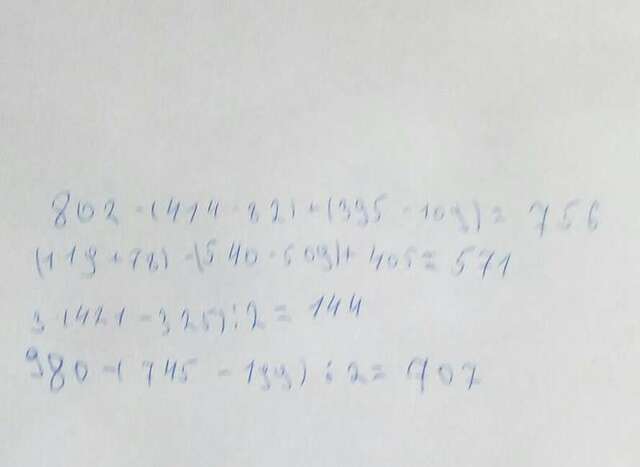 802 - (414 - 82) + (395 - 109) = 756
(119 + 78) - (540 - 509) + 405 = 571
3 · (421 - 325) : 2 = 144
980 - (745 - 199) : 2 = 707